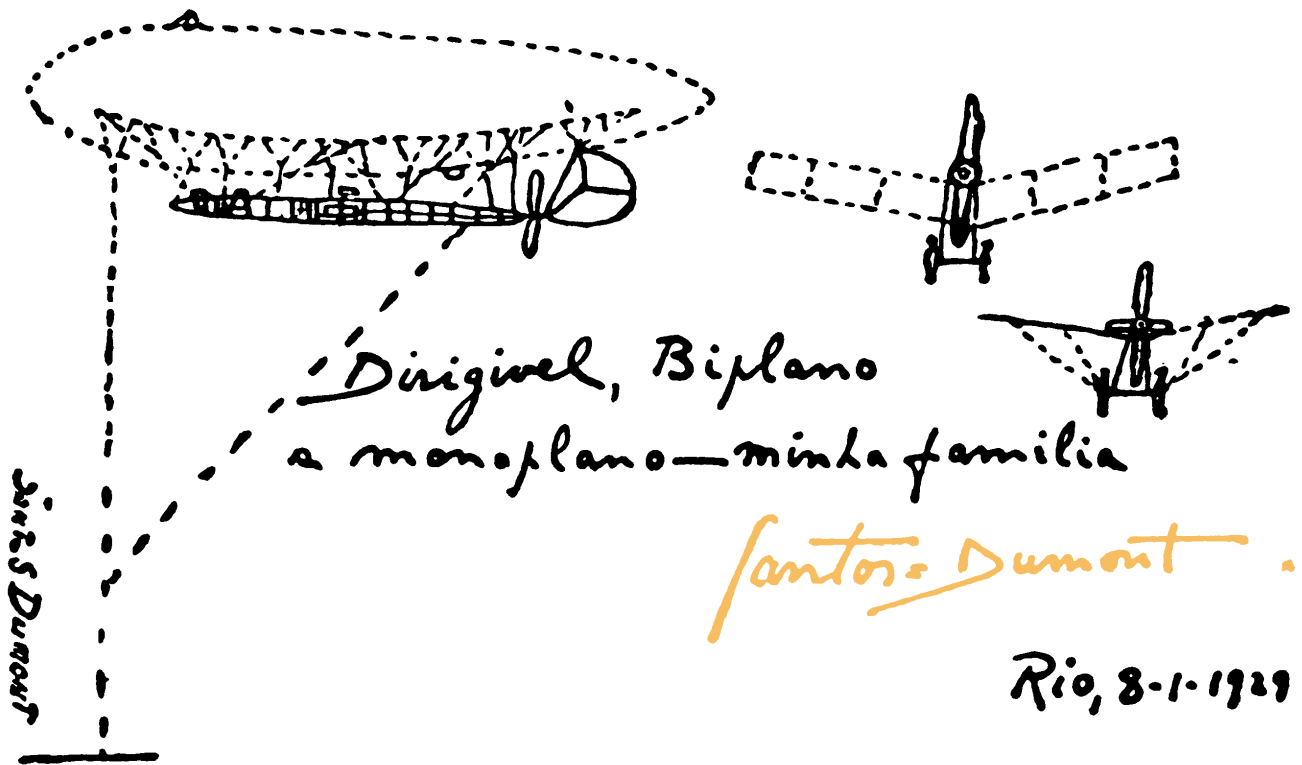 Dirigivel, Biplano
e monoplano—minha familia
Santos=Dumont.
Rio, 8-1-1929
S Dumont